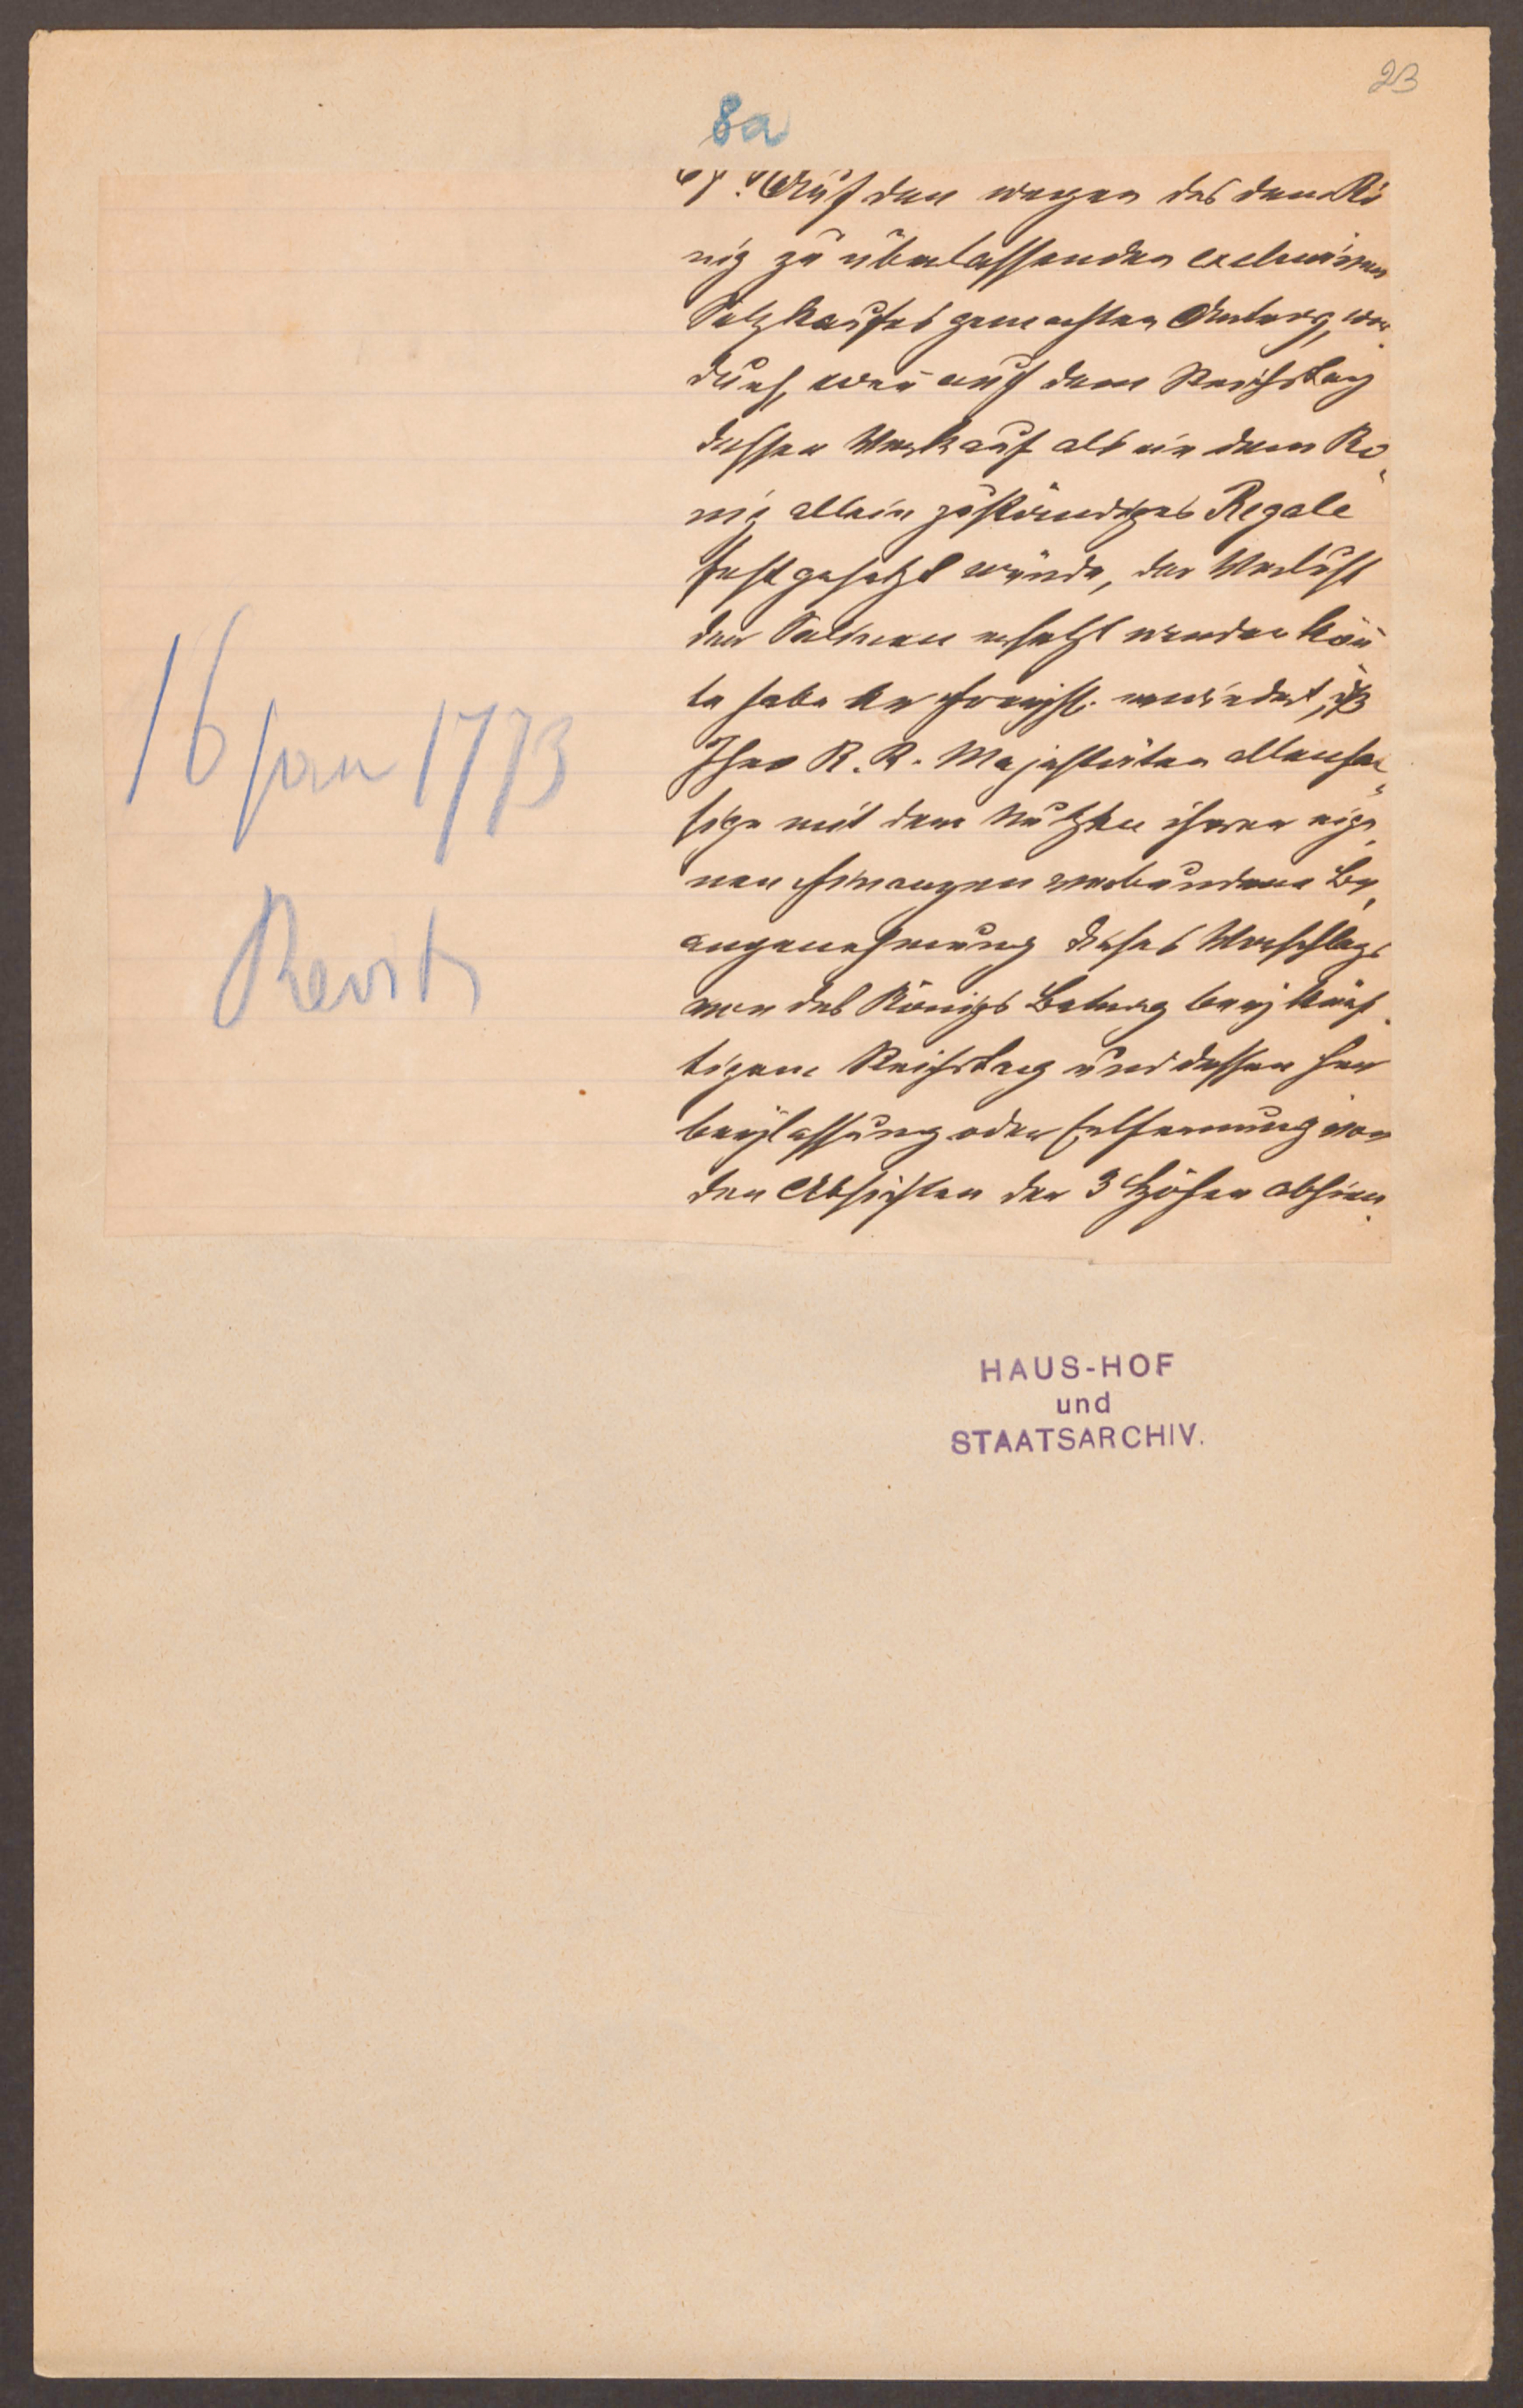 23
8a
Auf den wegen des dem Kö
nig zu überlassenden exclusiven
Salzkaufes gemachten Antrag, wo
durch, weñ auf dem Reichstag
dessen Verkauf als ein dem Kö
nig allein zuständiges Regale
festgesetzt würde, der Verlust
der Salinen ersetzt werden köñ
te habe erwiedert, dß
Ihro K. K. Majestäten
mit dem Nutzen ihrer eige
nen Finanzen verbundene Be
angenehmung dieses Vorschlags
von des Königs Betrag bey künf
tigem Reichstag und dessen Her
beylassung oder Entfernung von
den Absichten der 3 Höfen abhien
16 Jan 1773
HAUS-HOF
und
STAATSARCHIV.